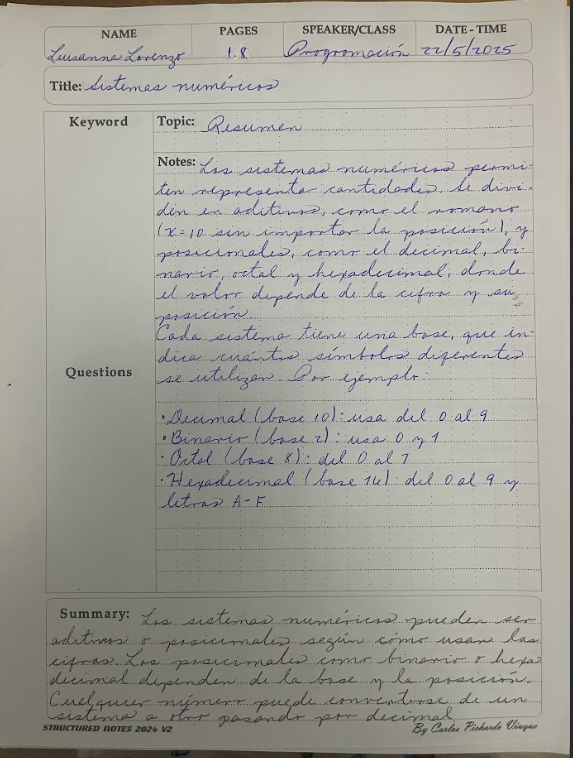 NAME PAGES SPEAKER/CLASS DATE - TIME
Luisanna Lorenzo 1.8 Programación 22/5/2025
Title: Sistemas numéricos
Keyword
Topic: Resumen
Notes: Los sistemas numéricos permi-
ten representar cantidades. Se divi-
den en aditivos, como el romano
(x=10 sin importar la posición), y
posicionales, como el decimal, bi-
nario, octal y hexadecimal, donde
el valor depende de la cifra y su
posición.
Cada sistema tiene una base, que in-
dica cuántos símbolos diferentes
se utilizan. Por ejemplo:
Questions
• Decimal (base 10): usa del 0 al 9
• Binario (base 2): usa 0 y 1
• Octal (base 8): del 0 al 7
• Hexadecimal (base 16): del 0 al 9 y
letras A-F
Summary: Los sistemas numéricos pueden ser
aditivos o posicionales según cómo usan las
cifras. Los posicionales como binario o hexa
decimal dependen de la base y la posición.
Cualquier número puede convertirse de un
sistema a otro pasando por decimal.
STRUCTURED NOTES 2024 V2 By Carlos Pichardo Viuque